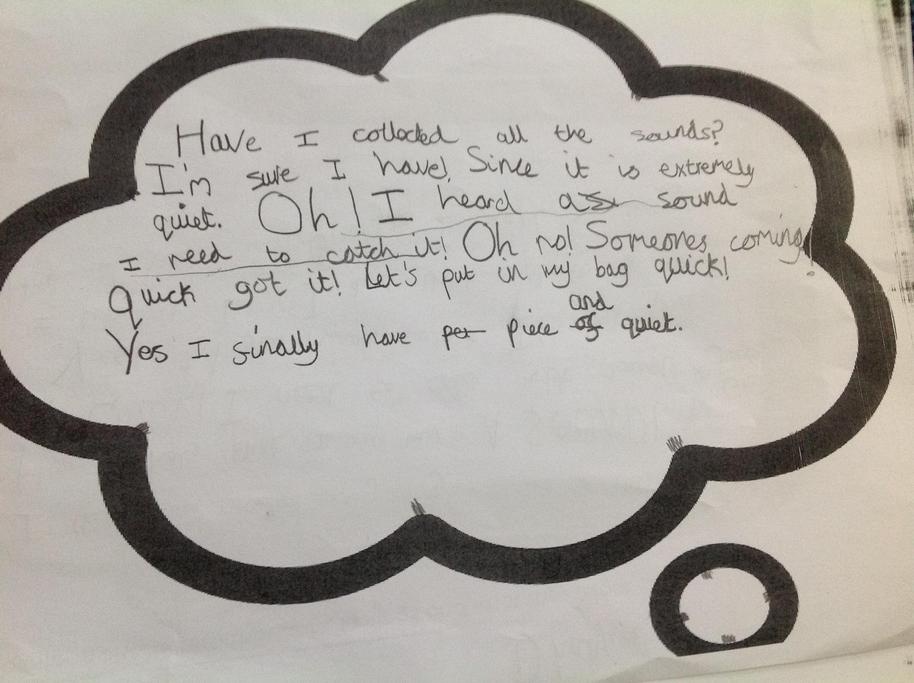 Have I collocted all the sounds?
I'm sure I have! Since it is extremely
quiet. Oh! I heard a sound
I need to catch it! Oh no! Someones coming!
Quick got it! Let's put in my bag quick!
and
Yes I finally have piece quiet.